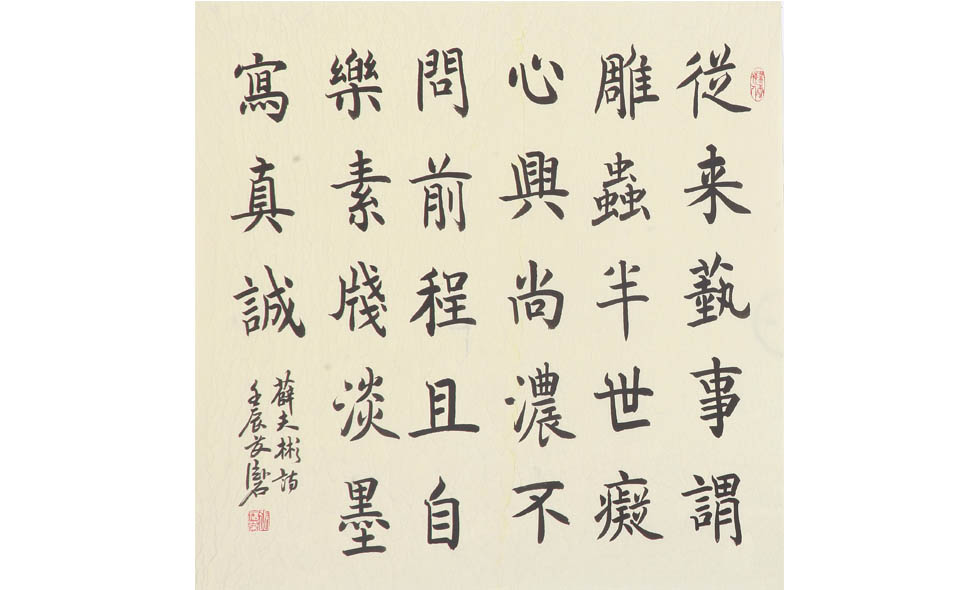 從来藝事謂
雕蟲半世癡
心興尚濃不
問前程且自
樂素牋淡墨
寫真誠
薛夫彬詩
壬辰